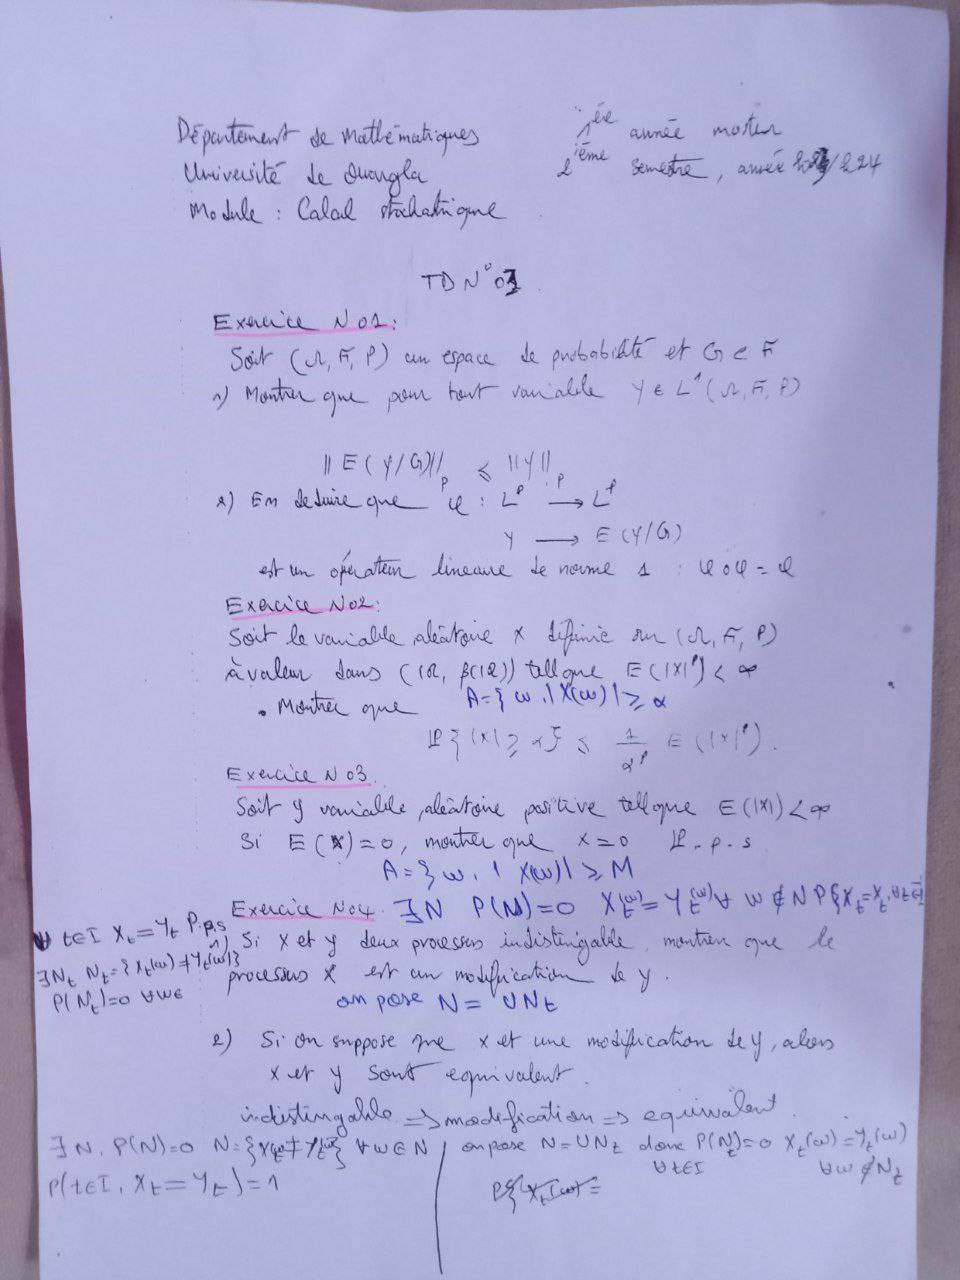 Département de Mathématiques
1ère année master
Université de Ouargla
2ième semestre, année /2024
Module : Calcul stochastique
TD N°03
Exercice N01:
Soit (Ω, F, P) un espace de probabilité et G ⊂ F
1) Montrer que pour tout variable Y ∈ L¹(Ω, F, P)
‖E(Y/G)‖_p ≤ ‖Y‖_p
2) En deduire que φ : L^p → L^p
Y → E(Y/G)
est un opérateur lineaire de norme 1 : φoφ = φ
Exercice N02:
Soit le variable aléatoire X définie sur (Ω, F, P)
à valeur dans (ℝ, β(ℝ)) tell que E(|X|^p) < ∞
. Montrer que A={ω, |X(ω)| ≥ α
P{|X| ≥ α} ≤ 1/α^p E(|X|^p).
Exercice N03
Soit y variable aléatoire positive tell que E(|X|) < ∞
Si E(X)=0, montrer que X=0 P.p.s
A={ω, |X(ω)| ≥ M
Exercice N04. ∃N P(N)=0 X_t(ω)=Y_t(ω) ∀ ω ∉ N
∀ t∈I X_t=Y_t P.p.s
1) Si X et y deux processus indistingable, montrer que le
∃N_t N_t={X_t(ω)≠Y_t(ω)}
processus X est un modification de y.
P(N_t)=0 ∀ω∈
on pose N = ∪N_t
2) Si on suppose que X et une modification de y, alors
X et y sont equivalent.
indistingable ⟹ modification ⟹ equivalent.
∃N, P(N)=0 N={X_t≠Y_t} ∀ω∈N
P(t∈I, X_t=Y_t)=1
on pose N=∪N_t donc P(N_t)=0 X_t(ω)=Y_t(ω)
∀t∈I ∀ω∉N_t
P{X_t(ω)=